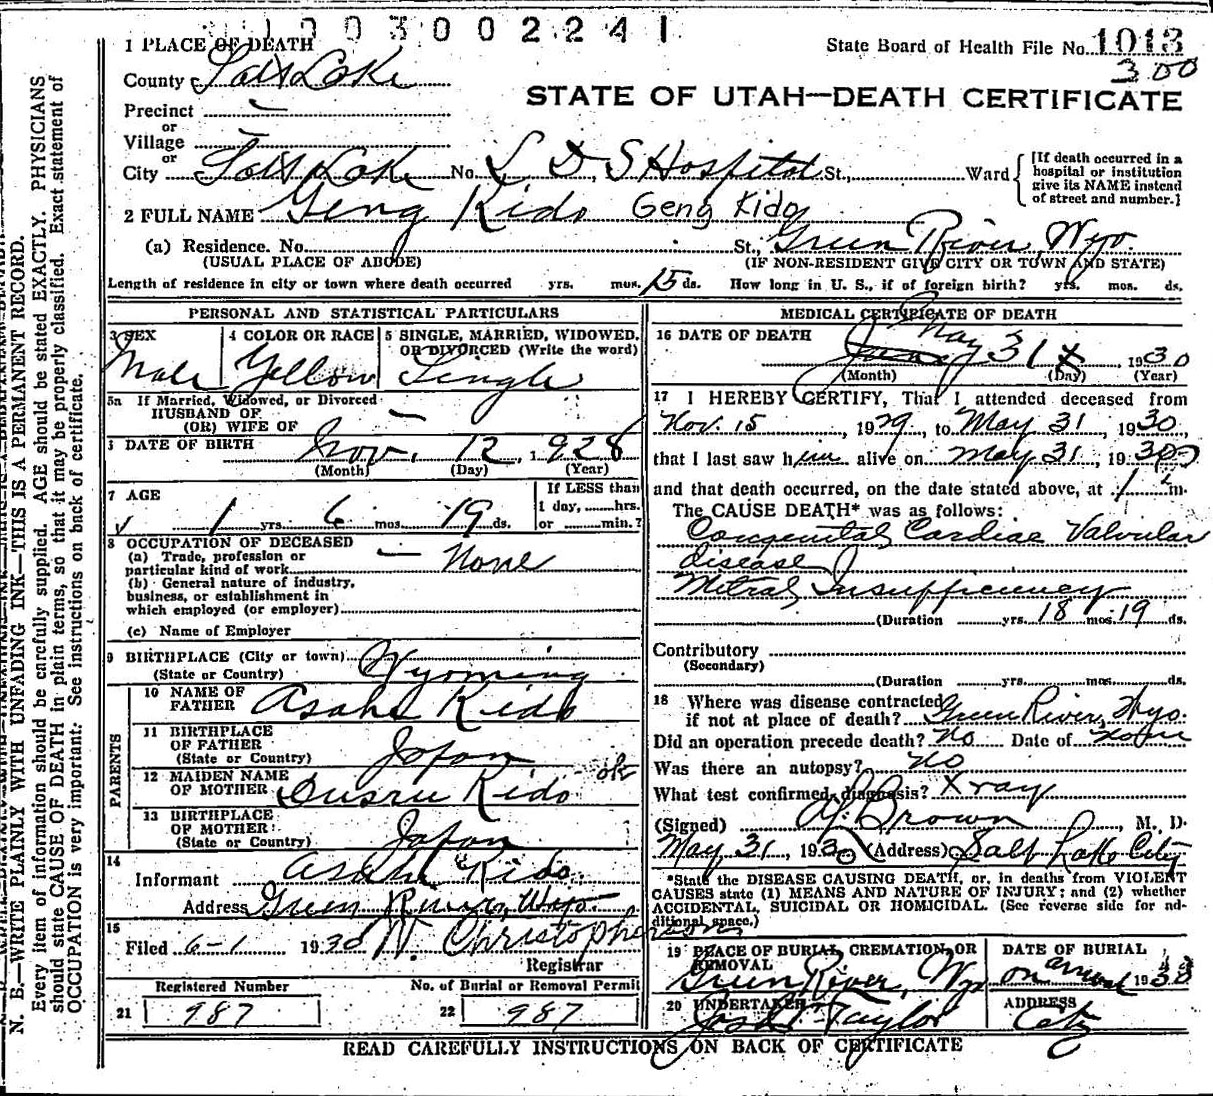 1003002241
State Board of Health File No. 1013
3.00
1 PLACE OF DEATH
County Salt Lake
STATE OF UTAH—DEATH CERTIFICATE
Precinct
or
Village
or
City Salt Lake No. L. D. S Hospital St., Ward
[If death occurred in a hospital or institution give its NAME instead of street and number.]
2 FULL NAME Geng Kido Geng Kido
(a) Residence. No. St., Green River, Wyo.
(USUAL PLACE OF ABODE) (IF NON-RESIDENT GIVE CITY OR TOWN AND STATE)
Length of residence in city or town where death occurred yrs. mos. 15 ds. How long in U. S., if of foreign birth? yrs. mos. ds.
PERSONAL AND STATISTICAL PARTICULARS
3 SEX
Male
4 COLOR OR RACE
Yellow
5 SINGLE, MARRIED, WIDOWED, OR DIVORCED (Write the word)
Single
5a If Married, Widowed, or Divorced
HUSBAND OF
(OR) WIFE OF
DATE OF BIRTH Nov. 12, 1928
(Month) (Day) (Year)
7 AGE
1 yrs. 6 mos. 19 ds.
If LESS than
1 day, ......hrs.
or ........min.?
8 OCCUPATION OF DECEASED
(a) Trade, profession or
particular kind of work None
(b) General nature of industry,
business, or establishment in
which employed (or employer)
(c) Name of Employer
9 BIRTHPLACE (City or town)
(State or Country) Wyoming
PARENTS
10 NAME OF
FATHER Asahe Kido
11 BIRTHPLACE
OF FATHER
(State or Country) Japan
12 MAIDEN NAME
OF MOTHER Kido ok
13 BIRTHPLACE
OF MOTHER
(State or Country) Japan
14
Informant Asahe Kido
Address Green River, Wyo.
15
Filed 6-1 1930 W. Christopherson
Registrar
Registered Number
21 987
No. of Burial or Removal Permit
22 987
MEDICAL CERTIFICATE OF DEATH
16 DATE OF DEATH
May 31 1930
(Month) (Day) (Year)
17 I HEREBY CERTIFY, That I attended deceased from
Nov. 15, 1929, to May 31, 1930,
that I last saw him alive on May 31, 1930
and that death occurred, on the date stated above, at 1 m.
The CAUSE DEATH* was as follows:
Congenital Cardiac Valvular
disease
Mitral Insufficiency
(Duration yrs. 18 mos. 19 ds.
Contributory
(Secondary)
(Duration yrs. mos. ds.
18 Where was disease contracted
if not at place of death? Green River, Wyo.
Did an operation precede death? No Date of None
Was there an autopsy? No
What test confirmed diagnosis? Xray
(Signed) Brown, M. D.
May 31, 1930 (Address) Salt Lake City
*State the DISEASE CAUSING DEATH, or, in deaths from VIOLENT
CAUSES state (1) MEANS AND NATURE OF INJURY; and (2) whether
ACCIDENTAL, SUICIDAL OR HOMICIDAL. (See reverse side for ad-
ditional space.)
19 PLACE OF BURIAL, CREMATION, OR
REMOVAL
Green River, Wyo
DATE OF BURIAL
on arrival 1930
20 UNDERTAKER
Taylor
ADDRESS
City
READ CAREFULLY INSTRUCTIONS ON BACK OF CERTIFICATE
N. B.—WRITE PLAINLY WITH UNFADING INK—THIS IS A PERMANENT RECORD.
Every item of information should be carefully supplied. AGE should be stated EXACTLY. PHYSICIANS
should state CAUSE OF DEATH in plain terms, so that it may be properly classified. Exact statement of
OCCUPATION is very important. See instructions on back of certificate.